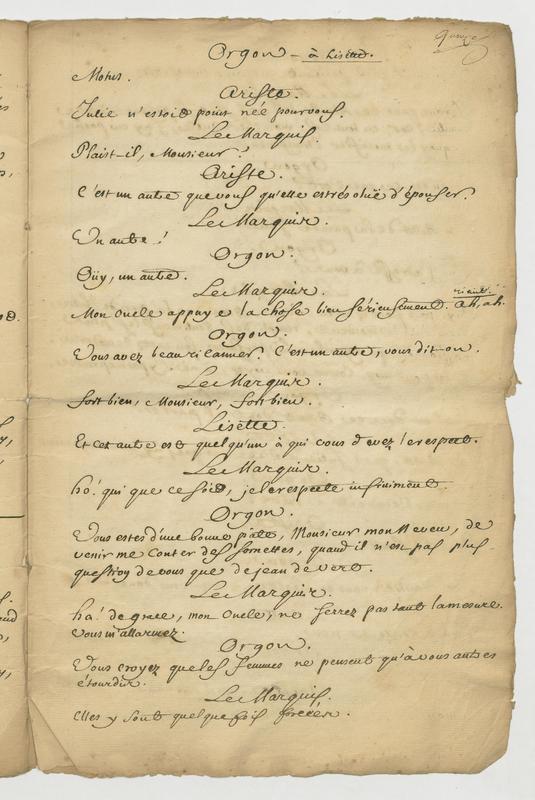 quinze
Orgon - à Lisette.
Motus.
Ariste.
Julie n'estoit point née pour vous.
Le Marquis.
Plaist-il, Monsieur?
Ariste.
C'est un autre que vous qu'elle est résoluë d'épouser.
Le Marquis.
Un autre!
Orgon.
Oüy, un autre.
Le Marquis.
riant.
Mon Oncle appuye la chose bien sérieusement. ah, ah.
Orgon.
Vous avez beau ricanner. C'est un autre, vous dit-on.
Le Marquis.
fort bien, Monsieur, fort bien.
Lisette.
Et cet autre est quelqu'un à qui vous devez le respect.
Le Marquis.
ho! qui que ce soit, je le respecte infiniment.
Orgon.
Vous estes d'une bonne pâte, Monsieur mon Neveu, de
venir me conter des sornettes, quand il n'est pas plus
question de vous que de jean de vert.
Le Marquis.
ha! de grace, mon Oncle, ne serrez pas tant la mesure
vous m'allarmez.
Orgon.
Vous croyez que les femmes ne pensent qu'à vous autres
étourdis.
Le Marquis.
Elles y sont quelque fois forcées.